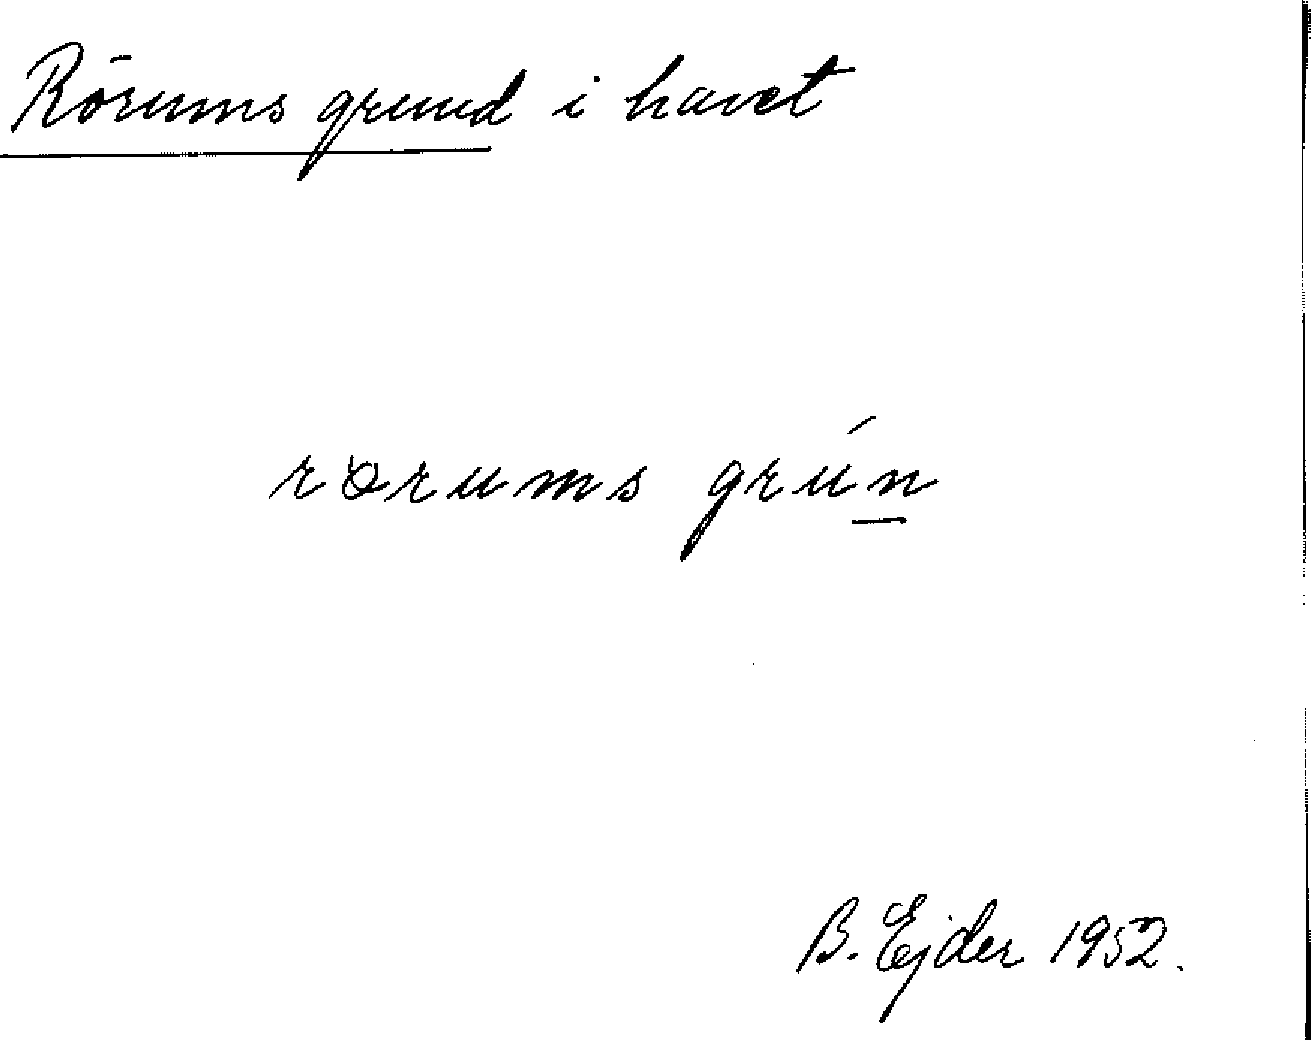 Rörums grund i havet
rørums grún
B. Ejder 1952.